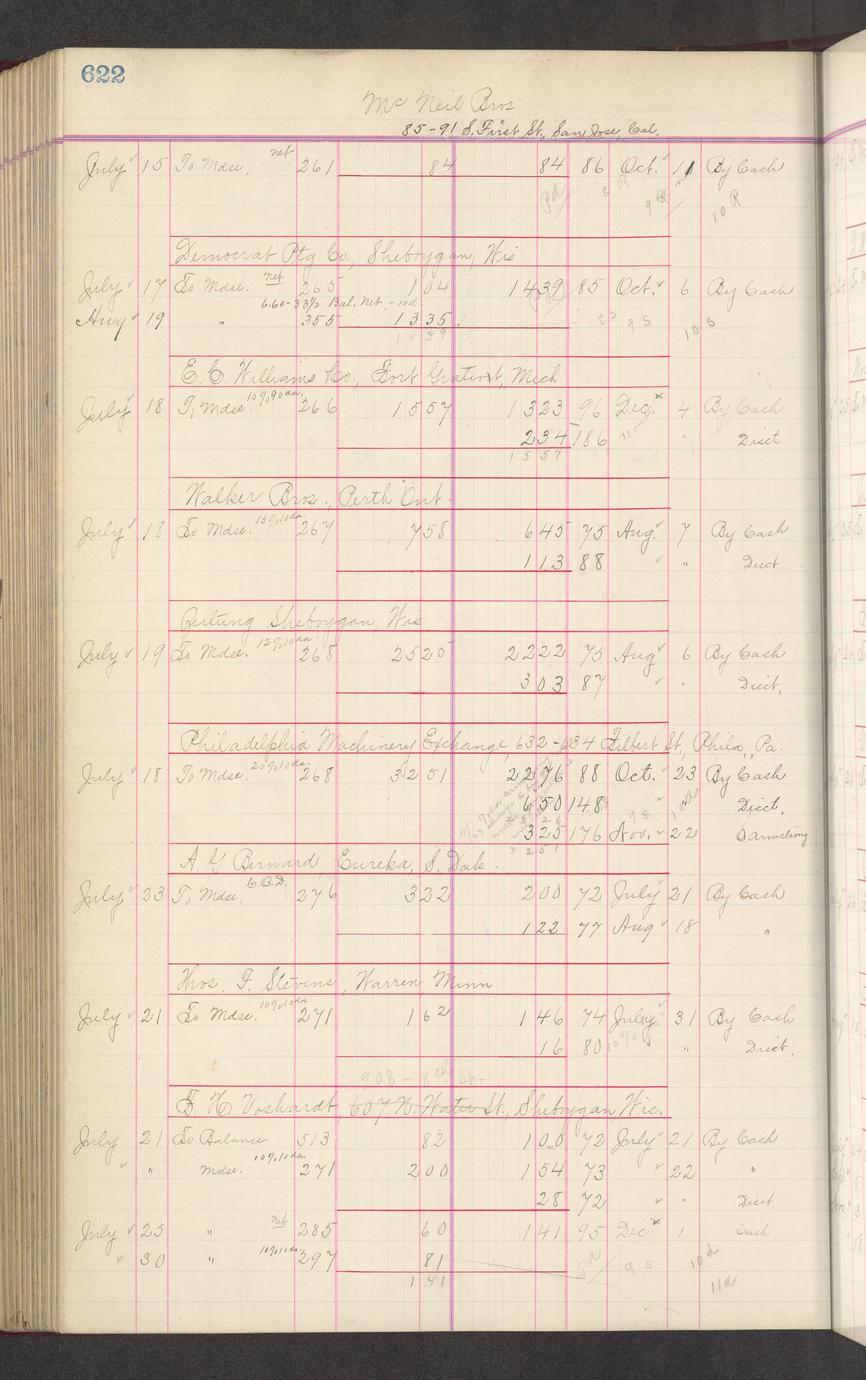 622
Mc Neil Bros
85-91 S. First St., San Jose, Cal.
July 15 To Mdse. net 261 84 84 86 Oct. 11 By Cash
Pd 8 R 9 R 10 R
Democrat Ptg Co., Sheboygan, Wis
July 17 To Mdse. net 265 1 04 14 39 85 Oct. 6 By Cash
6.60-33 1/2 Bal. Net - 10d.
Aug 19 " 355 13 35 9 S 10 S
14 39
E. C. Williams Co., Fort Gratiot, Mich
July 18 To Mdse. 15%90da. 266 15 57 13 23 96 Dec. 4 By Cash
2 34 186 " Disct
15 57
Walker Bros., Perth Ont.
July 18 To Mdse. 15%10da. 267 7 58 6 45 75 Aug. 7 By Cash
1 13 88 " " Disct.
Zeitung Sheboygan, Wis
July 19 To Mdse. 12%10da. 268 25 25 22 22 75 Aug 6 By Cash
3 03 87 " Disct.
Philadelphia Machinery Exchange, 632-634 Filbert St., Phila., Pa.
July 18 To Mdse. 20%10da. 268 32 51 22 76 88 Oct. 23 By Cash
6 50 148 " Disct.
3 25 176 Nov. 22 O Armstrong
32 51
A. G Bernard, Eureka, S. Dak.
July 23 To Mdse. C.O.D. 276 3 22 2 00 72 July 21 By Cash
1 22 77 Aug 18 "
Thos. F. Stevens, Warren, Minn
July 21 To Mdse. 10%10da 271 1 62 1 46 74 July 31 By Cash
16 80 " Disct.
908 - 8th St.
F H Voshardt, 607 N. Water St., Sheboygan, Wis.
July 21 To Balance 513 82 1 00 72 July 21 By Cash
" Mdse. 10%10da. 271 2 00 1 54 73 22 "
28 72 " Disct
July 25 " net 285 60 1 41 95 Dec. 1 Cash
30 " 10%10da 297 81 Pd 9 S 10d
1 41 11d